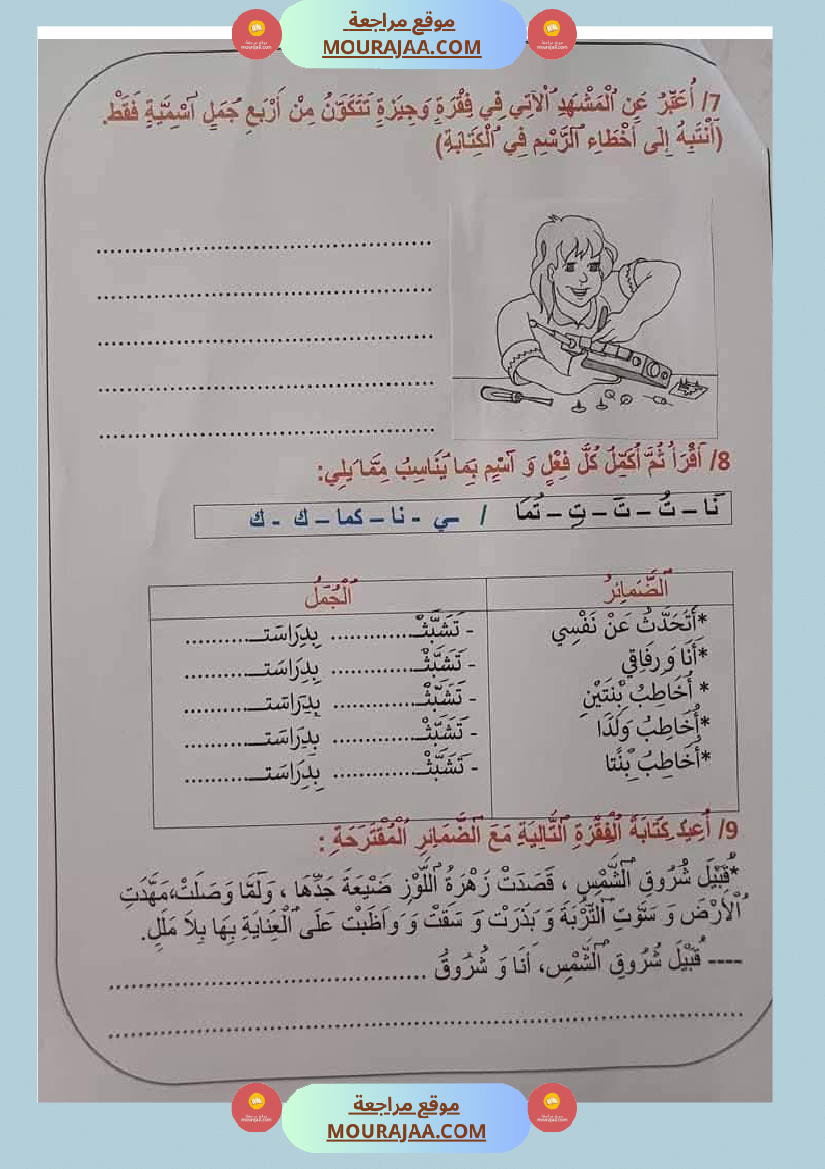 موقع مراجعة
MOURAJAA.COM
7/ أُعَبِّرُ عَنِ ٱلْمَشْهَدِ ٱلْآتِي فِي فِقْرَةٍ وَجِيزَةٍ تَتَكَوَّنُ مِنْ أَرْبَعِ جُمَلٍ ٱسْمِيَّةٍ فَقَطْ.
(أَنْتَبِهُ إِلَى أَخْطَاءِ ٱلرَّسْمِ فِي ٱلْكِتَابَةِ)
................................................
................................................
................................................
................................................
................................................
8/ ٱقْرَأْ ثُمَّ أُكَمِّلُ كُلَّ فِعْلٍ وَ ٱسْمٍ بِمَا يُنَاسِبُ مِمَّا يَلِي:
نَا – تُ – تَ – تِ – تُمَا / ـي - نا – كما – ك - ك
ٱلضَّمَائِرُ ٱلْجُمَلُ
*أَتَحَدَّثُ عَنْ نَفْسِي - تَشَبَّثْـ............... بِدِرَاسَتـ..........
*أَنَا وَ رِفَاقِي - تَشَبَّثْـ............... بِدِرَاسَتـ..........
* أُخَاطِبُ بِنْتَيْنِ - تَشَبَّثْـ............... بِدِرَاسَتـ..........
*أُخَاطِبُ وَلَدًا - تَشَبَّثْـ............... بِدِرَاسَتـ..........
*أُخَاطِبُ بِنْتًا - تَشَبَّثْـ............... بِدِرَاسَتـ..........
9/ أُعِيدُ كِتَابَةَ ٱلْفِقْرَةِ ٱلتَّالِيَةِ مَعَ ٱلضَّمَائِرِ ٱلْمُقْتَرَحَةِ :
*قُبَيْلَ شُرُوقِ ٱلشَّمْسِ ، قَصَدَتْ زَهْرَةُ ٱللَّوْزِ ضَيْعَةَ جَدِّهَا ، وَلَمَّا وَصَلَتْ،مَهَّدَتِ
ٱلْأَرْضَ وَ سَوَّتِ ٱلتُّرْبَةَ وَ بَذَرَتْ وَ سَقَتْ وَ وَاظَبَتْ عَلَى ٱلْعِنَايَةِ بِهَا بِلاَ مَلَلٍ.
---- قُبَيْلَ شُرُوقِ ٱلشَّمْسِ، أَنَا وَ شُرُوقُ ..........................................
................................................................................
موقع مراجعة
MOURAJAA.COM